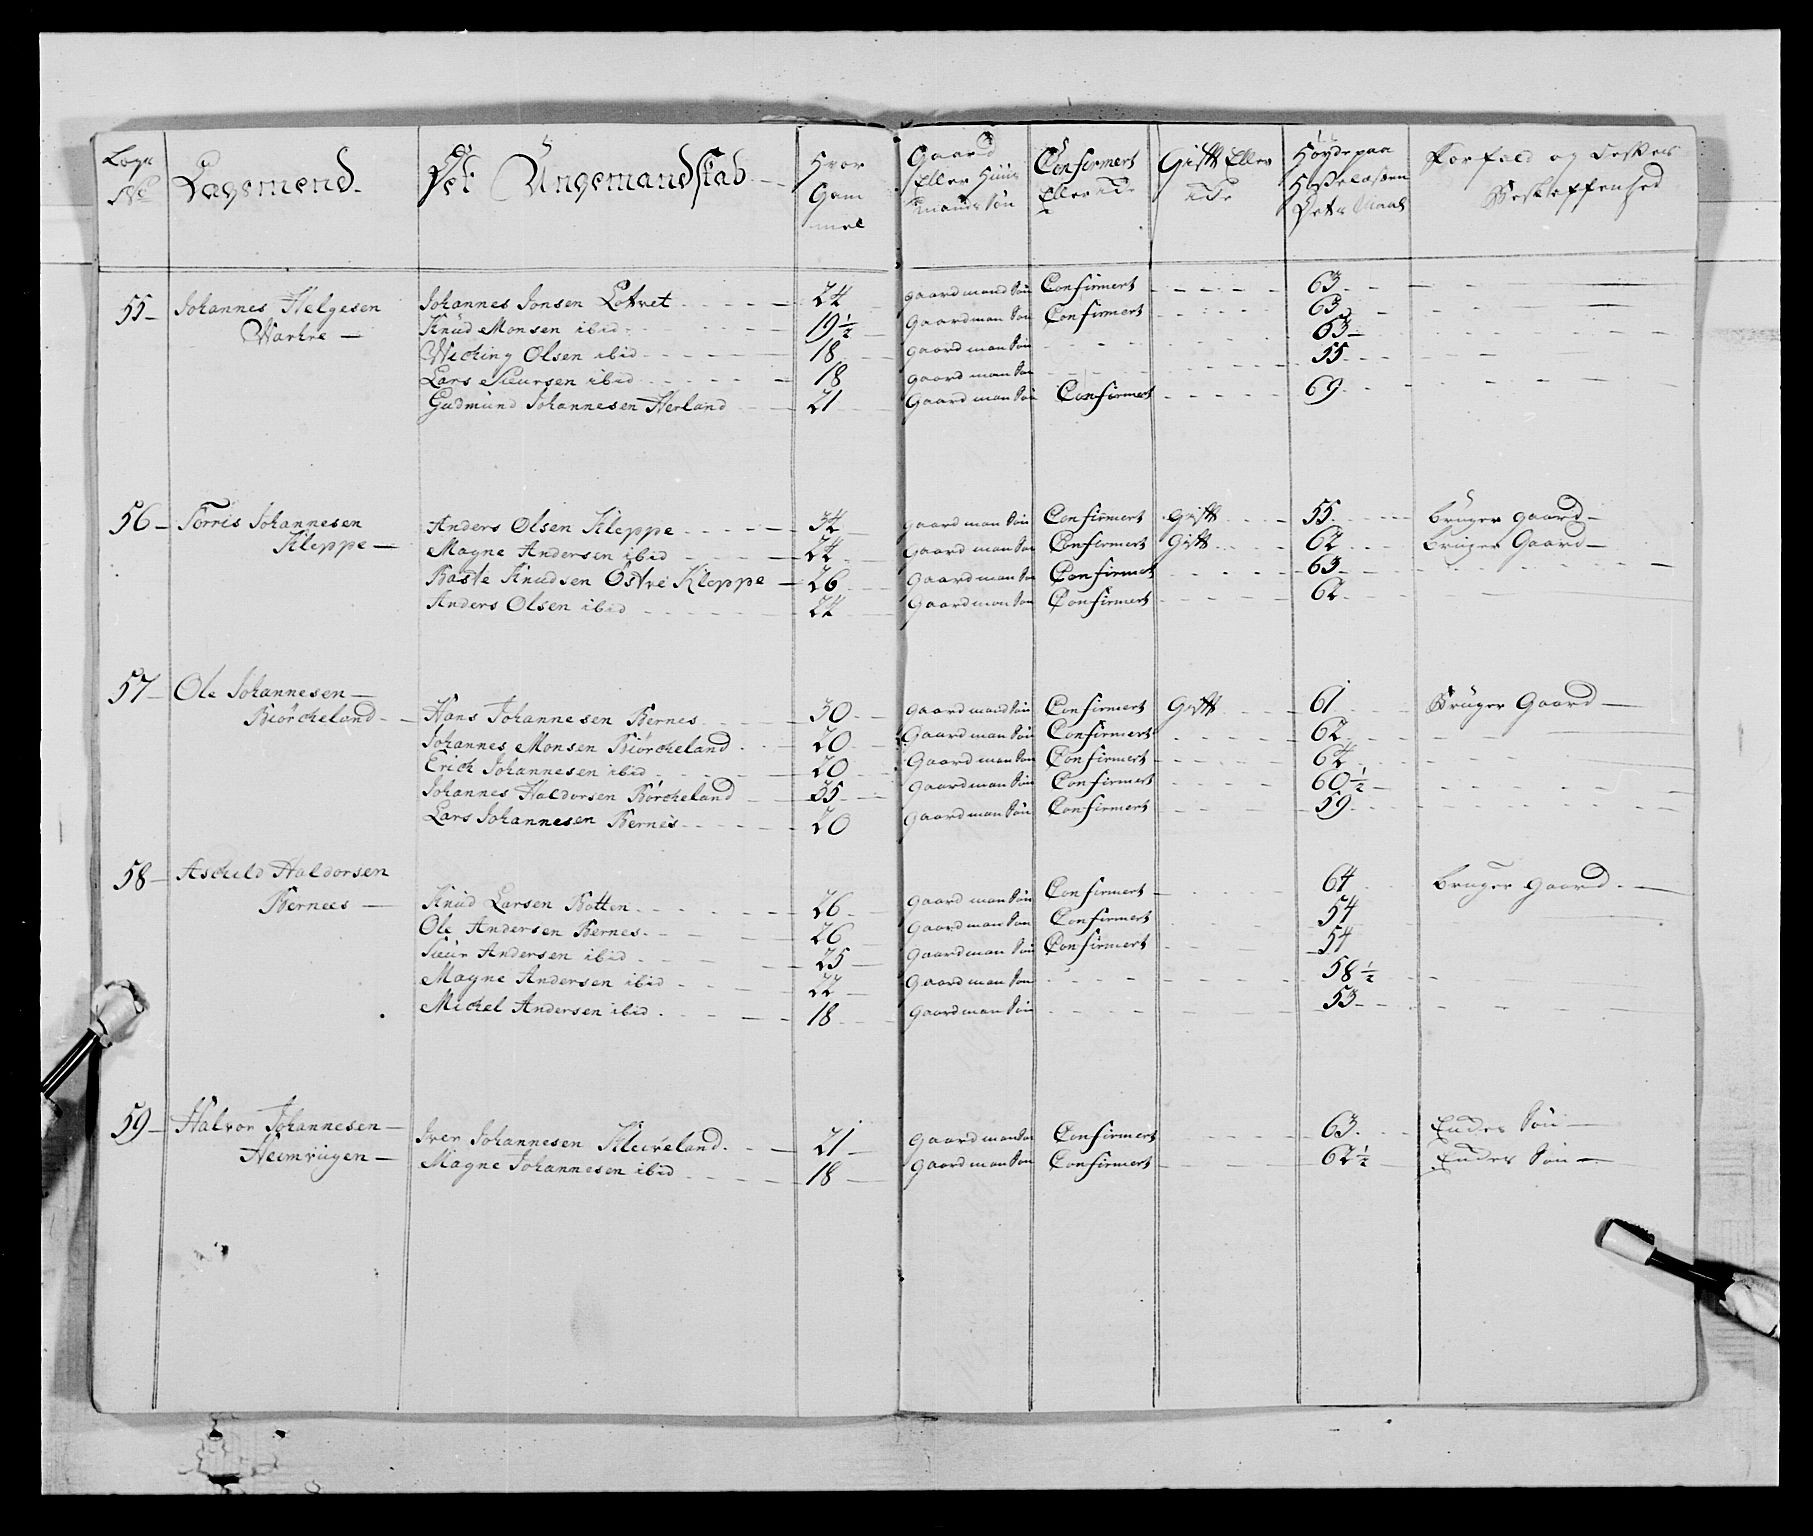 Logn No | Lagemend. | Det Ungemandskab | Hvor Gam mel | Gaard Eller Huus mands Søn | Confirmert Eller | Gift Eller | Høyde paa | Forfald og Beskaffenhed
55 – Johannes Helgesen | Johannes Jonsen Lotvet | 24 | gaard mand Søn | Confirmert | 63
Knud Monsen ibid | 19½ | gaard man Søn | Confirmert | 63
Wiching Olsen ibid | 18 | gaard man Søn | 63
Lars Siursen ibid | 18 | gaard man Søn | 55
Gudmund Johannesen Herland | 21 | gaard man Søn | Confirmert | 69
56 – Torris Johannesen Kleppe – | Anders Olsen Kleppe | 34 | gaard man Søn | Confirmert | Gift | 55 | bruger gaard –
Magne Andersen ibid | 24 | gaard man Søn | Confirmert | Gift | 62 | bruger Gaard –
Baste Knudsen Østre Kleppe | 26 | gaard man Søn | Confirmert | 63
Anders Olsen ibid | 24 | gaard man Søn | Confirmert | 62
57 – Ole Johannesen – Biørcheland | Hans Johannesen Bernes | 30 | gaard mand Søn | Confirmert | Gift | 61 | Bruger Gaard –
Johannes Monsen Biørcheland | 20 | gaard man Søn | Confirmert | 62
Erich Johannesen ibid | 20 | gaard man Søn | Confirmert | 64
Johannes Haldorsen Børcheland | 35 | gaard man Søn | Confirmert | 60½
Lars Johannesen Bernes | 20 | gaard man Søn | Confirmert | 59
58 – Aschild Haldorsen Bernees – | Knud Larsen Botten | 26 | gaard man Søn | Confirmert | 64 | bruger gaard
Ole Andersen Bernes | 26 | gaard man Søn | Confirmert | 54
Siur Andersen ibid | 25 | gaard man Søn | Confirmert | 54
Magne Andersen ibid | 22 | gaard man Søn | 58½
Michel Andersen ibid | 18 | gaard man Søn | 53
59 – Halvor Johannesen – Heimvigen – | Iver Johannesen Kleiveland | 21 | gaard man Søn | Confirmert | 63 | Søn –
Magne Johannesen ibid | 18 | gaard man Søn | Confirmert | 62½ | Søn –